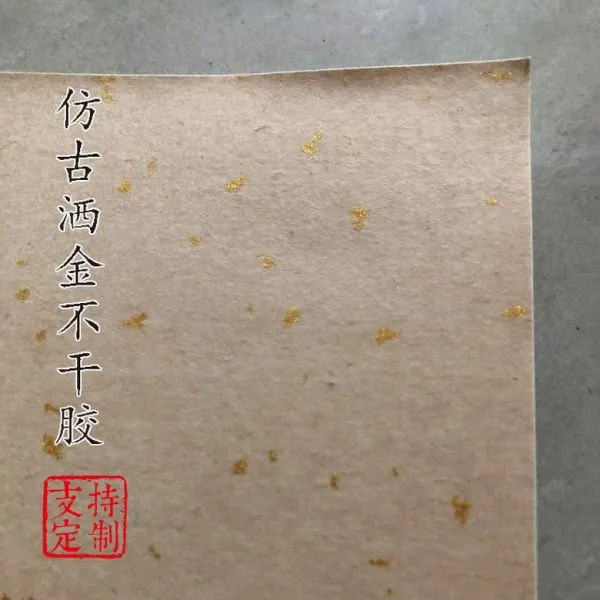 仿古洒金不干胶
支持
定制